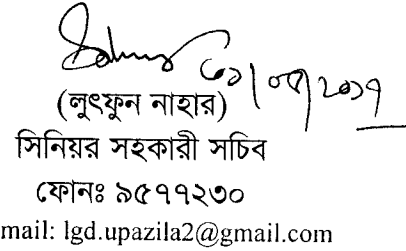 (লুৎফুন নাহার)
সিনিয়র সহকারী সচিব
ফোনঃ ৯৫৭৭২৩০
mail: lgd.upazila2@gmail.com